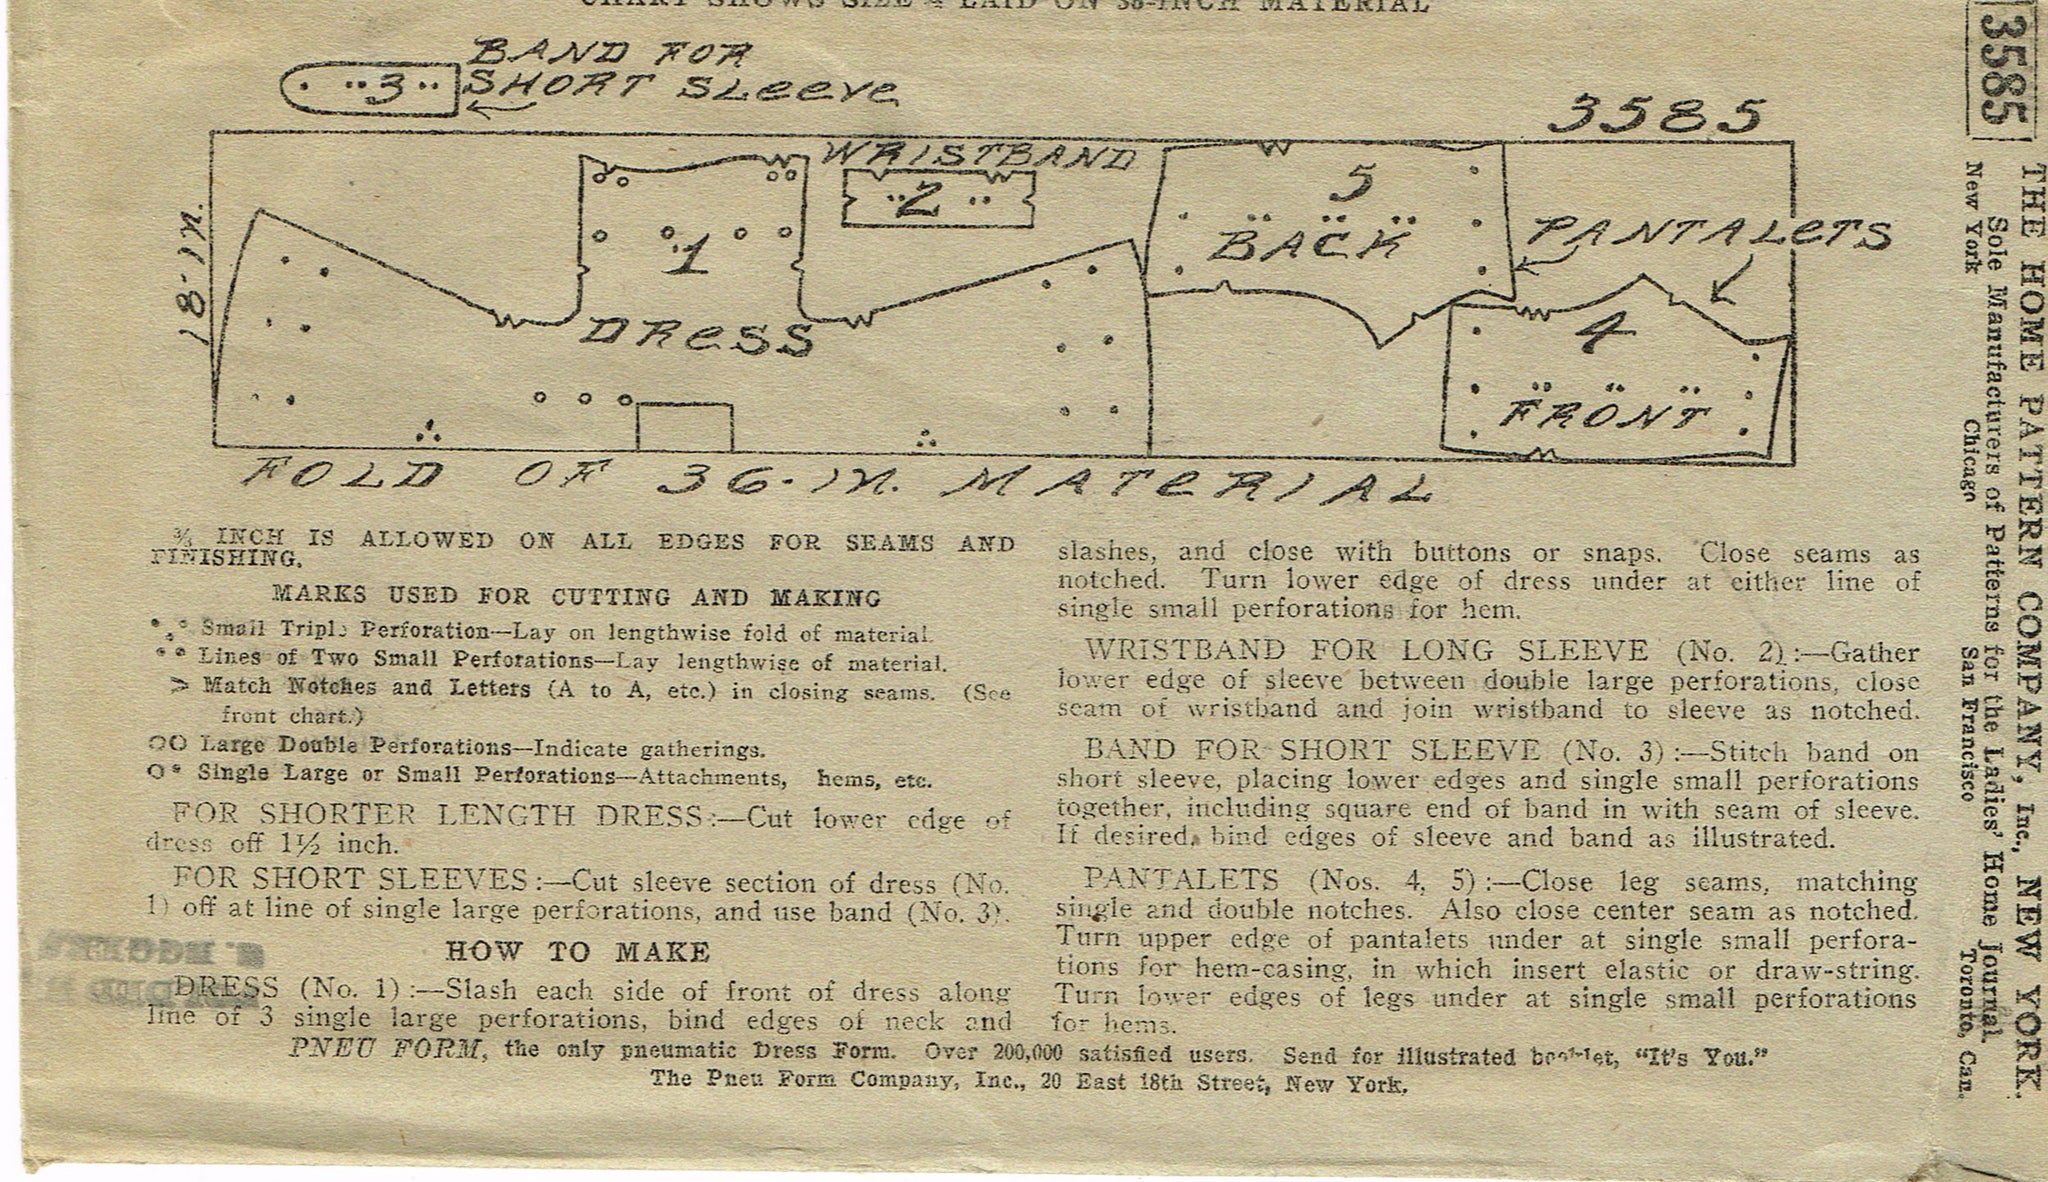 CHART SHOWS SIZE 4 LAID ON 36-INCH MATERIAL
BAND FOR
SHORT SLEEVE
3
3585
18-IN.
WRISTBAND
2
1
DRESS
5
BACK
PANTALETS
4
FRONT
FOLD OF 36-IN. MATERIAL
⅜ INCH IS ALLOWED ON ALL EDGES FOR SEAMS AND
FINISHING.
MARKS USED FOR CUTTING AND MAKING
Small Triple Perforation—Lay on lengthwise fold of material.
Lines of Two Small Perforations—Lay lengthwise of material.
Match Notches and Letters (A to A, etc.) in closing seams. (See
front chart.)
Large Double Perforations—Indicate gatherings.
Single Large or Small Perforations—Attachments, hems, etc.
FOR SHORTER LENGTH DRESS:—Cut lower edge of
dress off 1½ inch.
FOR SHORT SLEEVES:—Cut sleeve section of dress (No.
1) off at line of single large perforations, and use band (No. 3).
HOW TO MAKE
DRESS (No. 1):—Slash each side of front of dress along
line of 3 single large perforations, bind edges of neck and
slashes, and close with buttons or snaps. Close seams as
notched. Turn lower edge of dress under at either line of
single small perforations for hem.
WRISTBAND FOR LONG SLEEVE (No. 2):—Gather
lower edge of sleeve between double large perforations, close
seam of wristband and join wristband to sleeve as notched.
BAND FOR SHORT SLEEVE (No. 3):—Stitch band on
short sleeve, placing lower edges and single small perforations
together, including square end of band in with seam of sleeve.
If desired, bind edges of sleeve and band as illustrated.
PANTALETS (Nos. 4, 5):—Close leg seams, matching
single and double notches. Also close center seam as notched.
Turn upper edge of pantalets under at single small perfora-
tions for hem-casing, in which insert elastic or draw-string.
Turn lower edges of legs under at single small perforations
for hems.
PNEU FORM, the only pneumatic Dress Form. Over 200,000 satisfied users. Send for illustrated booklet, "It's You."
The Pneu Form Company, Inc., 20 East 18th Street, New York.
3585
THE HOME PATTERN COMPANY, Inc., NEW YORK.
Sole Manufacturers of Patterns for the Ladies' Home Journal
New York Chicago San Francisco Toronto, Can.